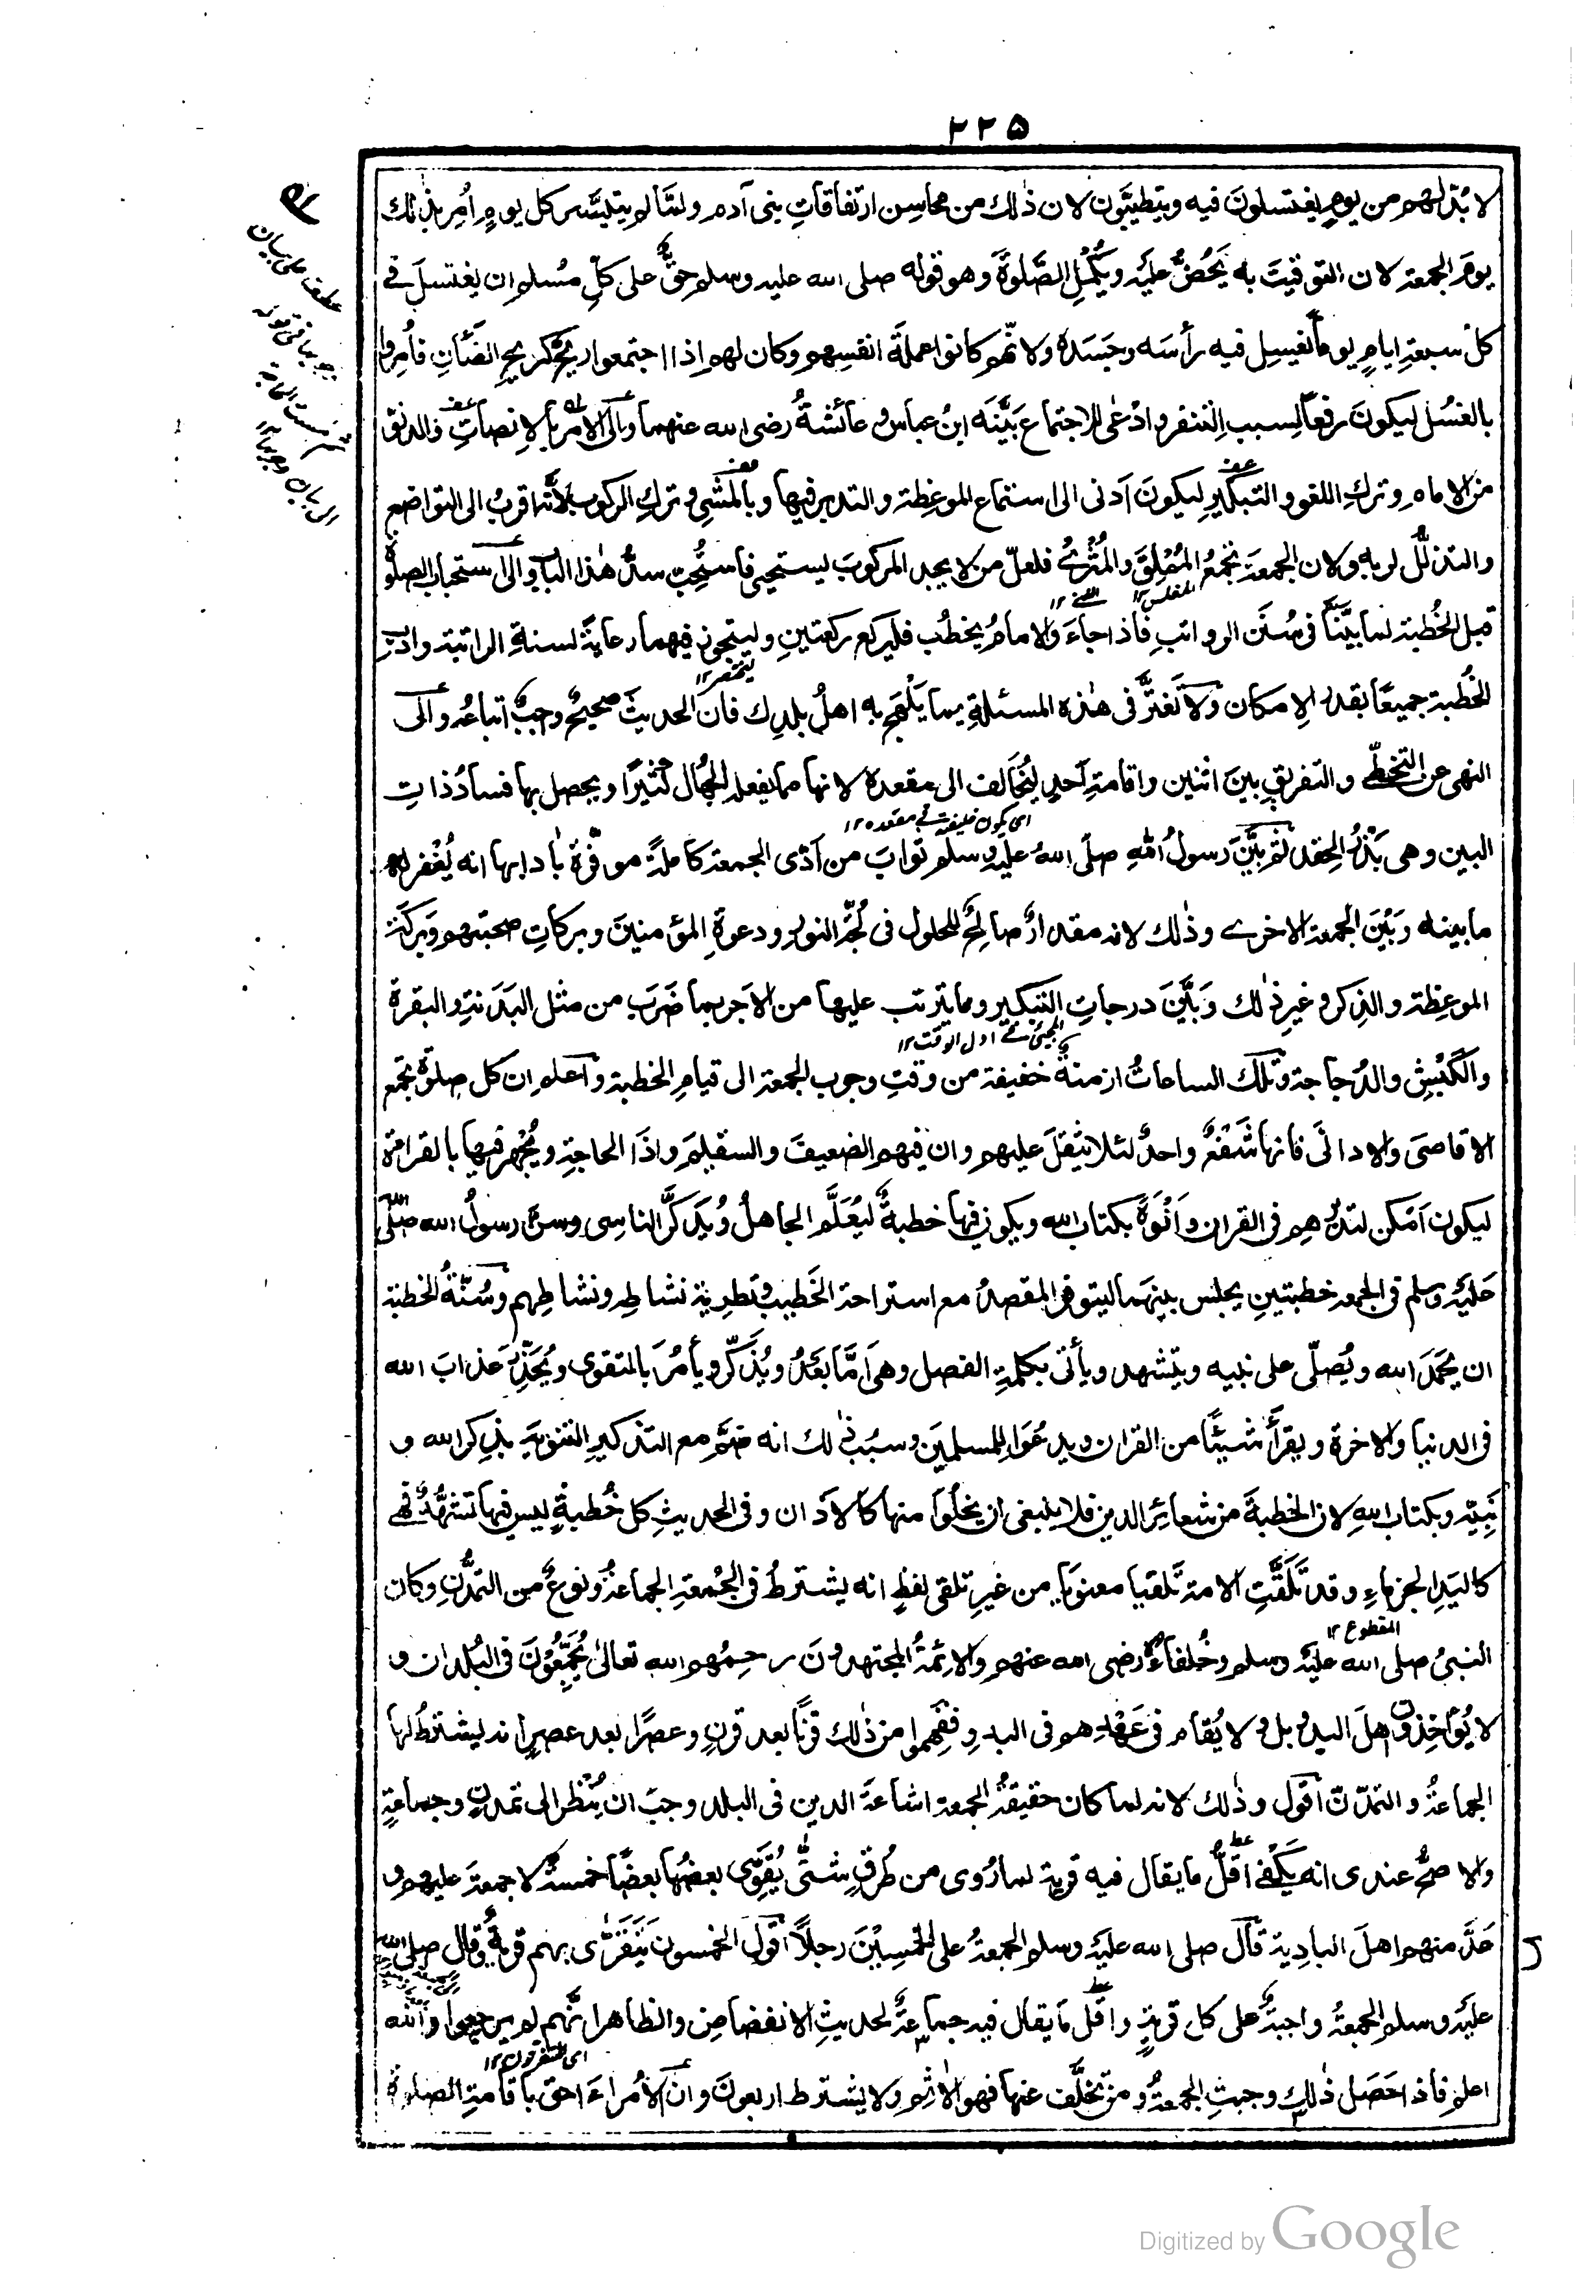 ٢٢٥
لا بُدّ لهم من يومٍ يغتسلونَ فيه ويتطيّبون لان ذٰلك من محاسِن ارتفاقاتِ بنى آدم ولمّا لم يتيسّر كل يومٍ اُمِر بذٰلك
يومَ الجمعة لان التوقيتَ به يَحُضُّ عليه ويُكْمِل الصَّلوٰةَ وهو قوله صلى الله عليه وسلم حقٌّ على كلِ مُسلم ان يغتسلَ فے
كل سبعةِ ايامٍ يوما يغسِل فيه رأسَه وجَسَدَه ولانهم كانوا عملةَ انفسِهم وكان لهم اذا اجتمعوا ريحٌ كريحِ الضَأنِ فاُمِروا
بالغسُل ليكونَ رفعًا لِسبب التنفر وادْعٰى للاجتماع بَيَّنَه ابنُ عباس وعائشةُ رضى الله عنهما والى الامر بالانصاتِ والدنوّ
من الامام وتركِ اللغو والتبكيرِ ليكونَ اَدنى الى استماع الموعِظة والتدبر فيها وبالمَشىِ وتركِ الركوب لانّه اقربُ الى التواضع
والتذلُّل لربه ولان الجمعةَ تجمَعُ المُمْلِقَ والمُثْرِىَ فلعلّ من لا يجد المركوبَ يستحيى فاستُحِبّ سدُّ هٰذا الباب والى استحباب الصلوٰة
المفلس ١٢ الغنے ١٢
قبل الخُطبة لما بيّنّا فى سُنَن الرواتبِ فاذا جاءَ والامامُ يخطُب فليركع ركعتينِ وليتجوز فيهما رعايةً لسنةِ الراتبة وادبِ
ليختصر ١٢
الخُطبة جميعًا بقدر الامكان ولا تَغترَّ فى هٰذه المسئلةِ بما يَلْهَج به اهلُ بلدِك فان الحديثَ صحيحٌ وجبٌ اتباعُه والى
النهى عن التخطّے والتفريقِ بينَ اثنين واقامةِ اَحدٍ ليُخالف الى مقعده لانها مما يفعله الجُهّال كثيرًا ويحصل بها فسادُ ذاتِ
اى يكون خليفته فے مقعده ١٢
البين وهى بَذْرُ الحِقد ثم بَيَّنَ رسولُ الله صلّى اللهُ عليه وسلم ثوابَ من اَدّى الجمعة كاملةً موفّرةً بٰادابها انه يُغْفر له
ما بينه وَبَيْنَ الجمعة الاخرٰے وذٰلك لانه مقدارٌ صالحٌ للحلول فى لُجّة النور ودعوةِ المؤمنينَ وبركاتِ صحبتهم وبَركة
الموعِظة والذِكر وغيرِ ذٰلك وَبَيَّنَ درجاتِ التبكير وما يترتب عليها من الاجر بما ضَرَبَ من مثل البَدَنةِ والبقرة
اى المجيئ فے اول الوقت ١٢
والكَبْشِ والدُجاجة وتلك الساعاتُ ازمنةٌ خفيفة من وقتِ وجوب الجمعة الى قيامِ الخطبة واعلم ان كل صلوٰة تجمع
الاقاصىَ والادانى فانها شَفْعٌ واحدٌ لئلا تثقُلَ عليهم وان فيهم الضعيفَ والسقيمَ وذا الحاجةِ ويُجْهر فيها بالقراءة
ليكون اَمْكن لتدبُّرهم فى القراٰن واَنْوَهَ بكتاب الله ويكون فيها خطبةٌ ليُعَلَّم الجاهلُ ويُذكَّر الناسِى وسنَّ رسولُ الله صلّى الله
عليه وسلم فى الجمعة خطبتينِ يجلس بينهما ليتوفر المقصدُ مع استراحة الخَطيب وتطريةِ نشاطِه ونشاطِهم وسُنّةُ الخطبة
ان يحمَدَ الله ويُصلّى على نبيه ويتشهد ويأتى بكلمةِ الفصل وهى اَمَّا بَعْدُ ويُذَكّر ويأمُرَ بالتقوى ويُحَذِّرَ عذابَ الله
فى الدنيا والاخرة ويقرأَ شيئًا من القراٰن ويدعُوَ للمسلمينَ وسبُبَ ذٰلك انه ضَمّ مع التذكيرِ التنويهَ بذِكر الله و
نَبِيّه وبكتاب اللهِ لان الخطبةَ من شعائِر الدين فلا ينبغى ان يخلُوَا منها كالاذان وفى الحديثِ كل خُطبةٍ ليس فيها تشهُّدٌ فهى
كاليدِ الجزماءِ وقد تَلَقَّتِ الامة تَلقيا معنويا من غيرِ تلقى لفظٍ انه يشترطُ فى الجُمعةِ الجماعةُ ونوعٌ من التمدُّنِ وكان
المقطوع ١٢
النبىُ صلى الله عليه وسلم وخُلفاءُه رضى الله عنهم والائمةُ المجتهدونَ رحِمهُم الله تعالىٰ يُجَمِّعُوْنَ فى البُلدان و
لا يُؤاخِذون اهلَ البدو بل ولا يُقام فى عَهْدِهم فى البدوِ ففَهِموا من ذٰلك قرنًا بعد قرنٍ وعصرًا بعد عصرٍ انه ليشترطُ لها
الجماعةُ والتمدّنُ اَقول وذٰلك لانه لما كان حقيقةُ الجمعة اشاعةَ الدين فى البلد وجبَ ان يُنْظَر الى تمدنٍ وجماعةٍ
والاصحُّ عندى انه يَكْفے اقلُّ ما يقال فيه قريةٌ لما رُوى من طُرقٍ شتّٰى يُقَوِّى بعضُها بعضًا خمسةٌ لا جمعةَ عليهم و
عَدَّ منهم اهلَ البادِية قال صلى الله عليه وسلم الجمعةُ على الخمسِيْنَ رجلًا اَقول الخمسون يَتَقَرّٰى بهم قريةٌ وقال صلى الله
عليه وسلم الجمعةُ واجبةٌ على كل قريةٍ واقل ما يقال فيه جماعةٌ لحديثِ الانفضاضِ والظاهر انّهم لم يرجعوا والله
اى المتفرقون ١٢
اعلم فاذا حَصَل ذٰلك وجبتِ الجمعةُ ومن تخلَّف عنها فهو الاٰثِم ولا يشترط اربعونَ وان الاُمراءَ احق باقامةِ الصلوٰة
Digitized by Google